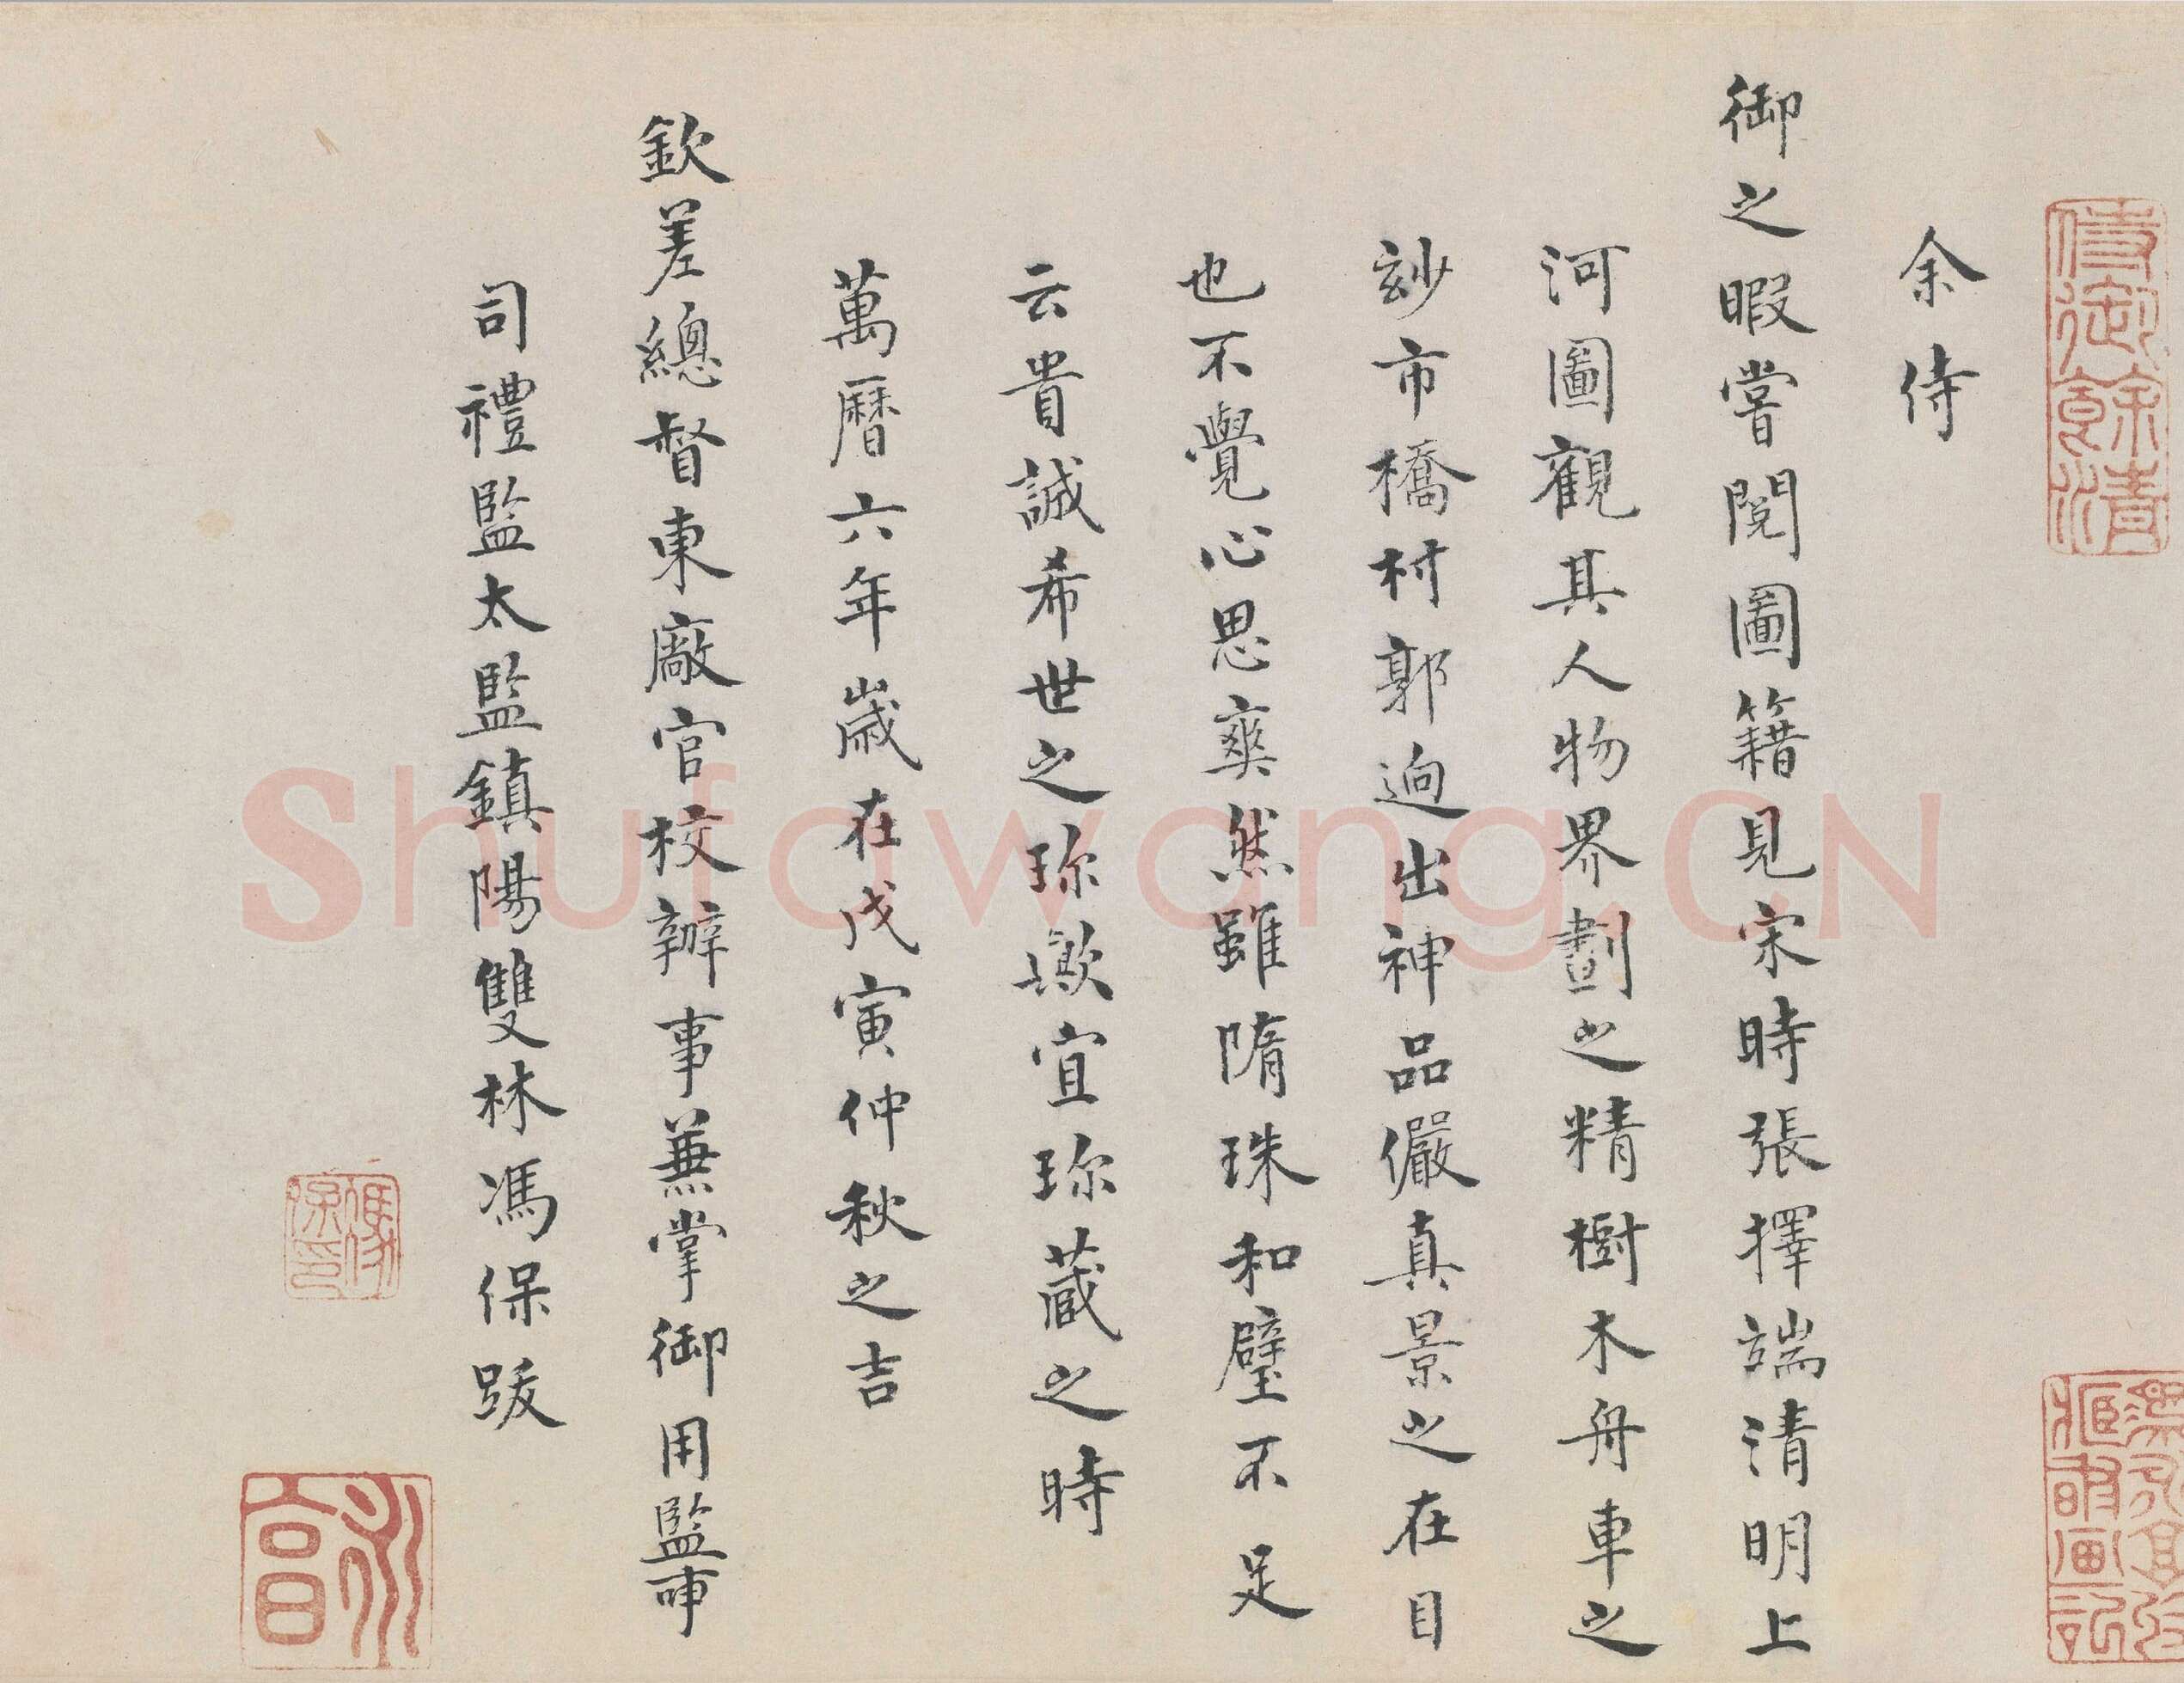 余侍
御之暇嘗閱圖籍見宋時張擇端清明上
河圖觀其人物界劃之精樹木舟車之
玅市橋村郭逈出神品儼真景之在目
也不覺心思爽然雖隋珠和璧不足
云貴誠希世之珎歟宜珎藏之時
萬曆六年歲在戊寅仲秋之吉
欽差總督東廠官校辦事兼掌御用監事
司禮監太監鎮陽雙林馮保跋
侍御餘清
馮保印
shufawang.CN